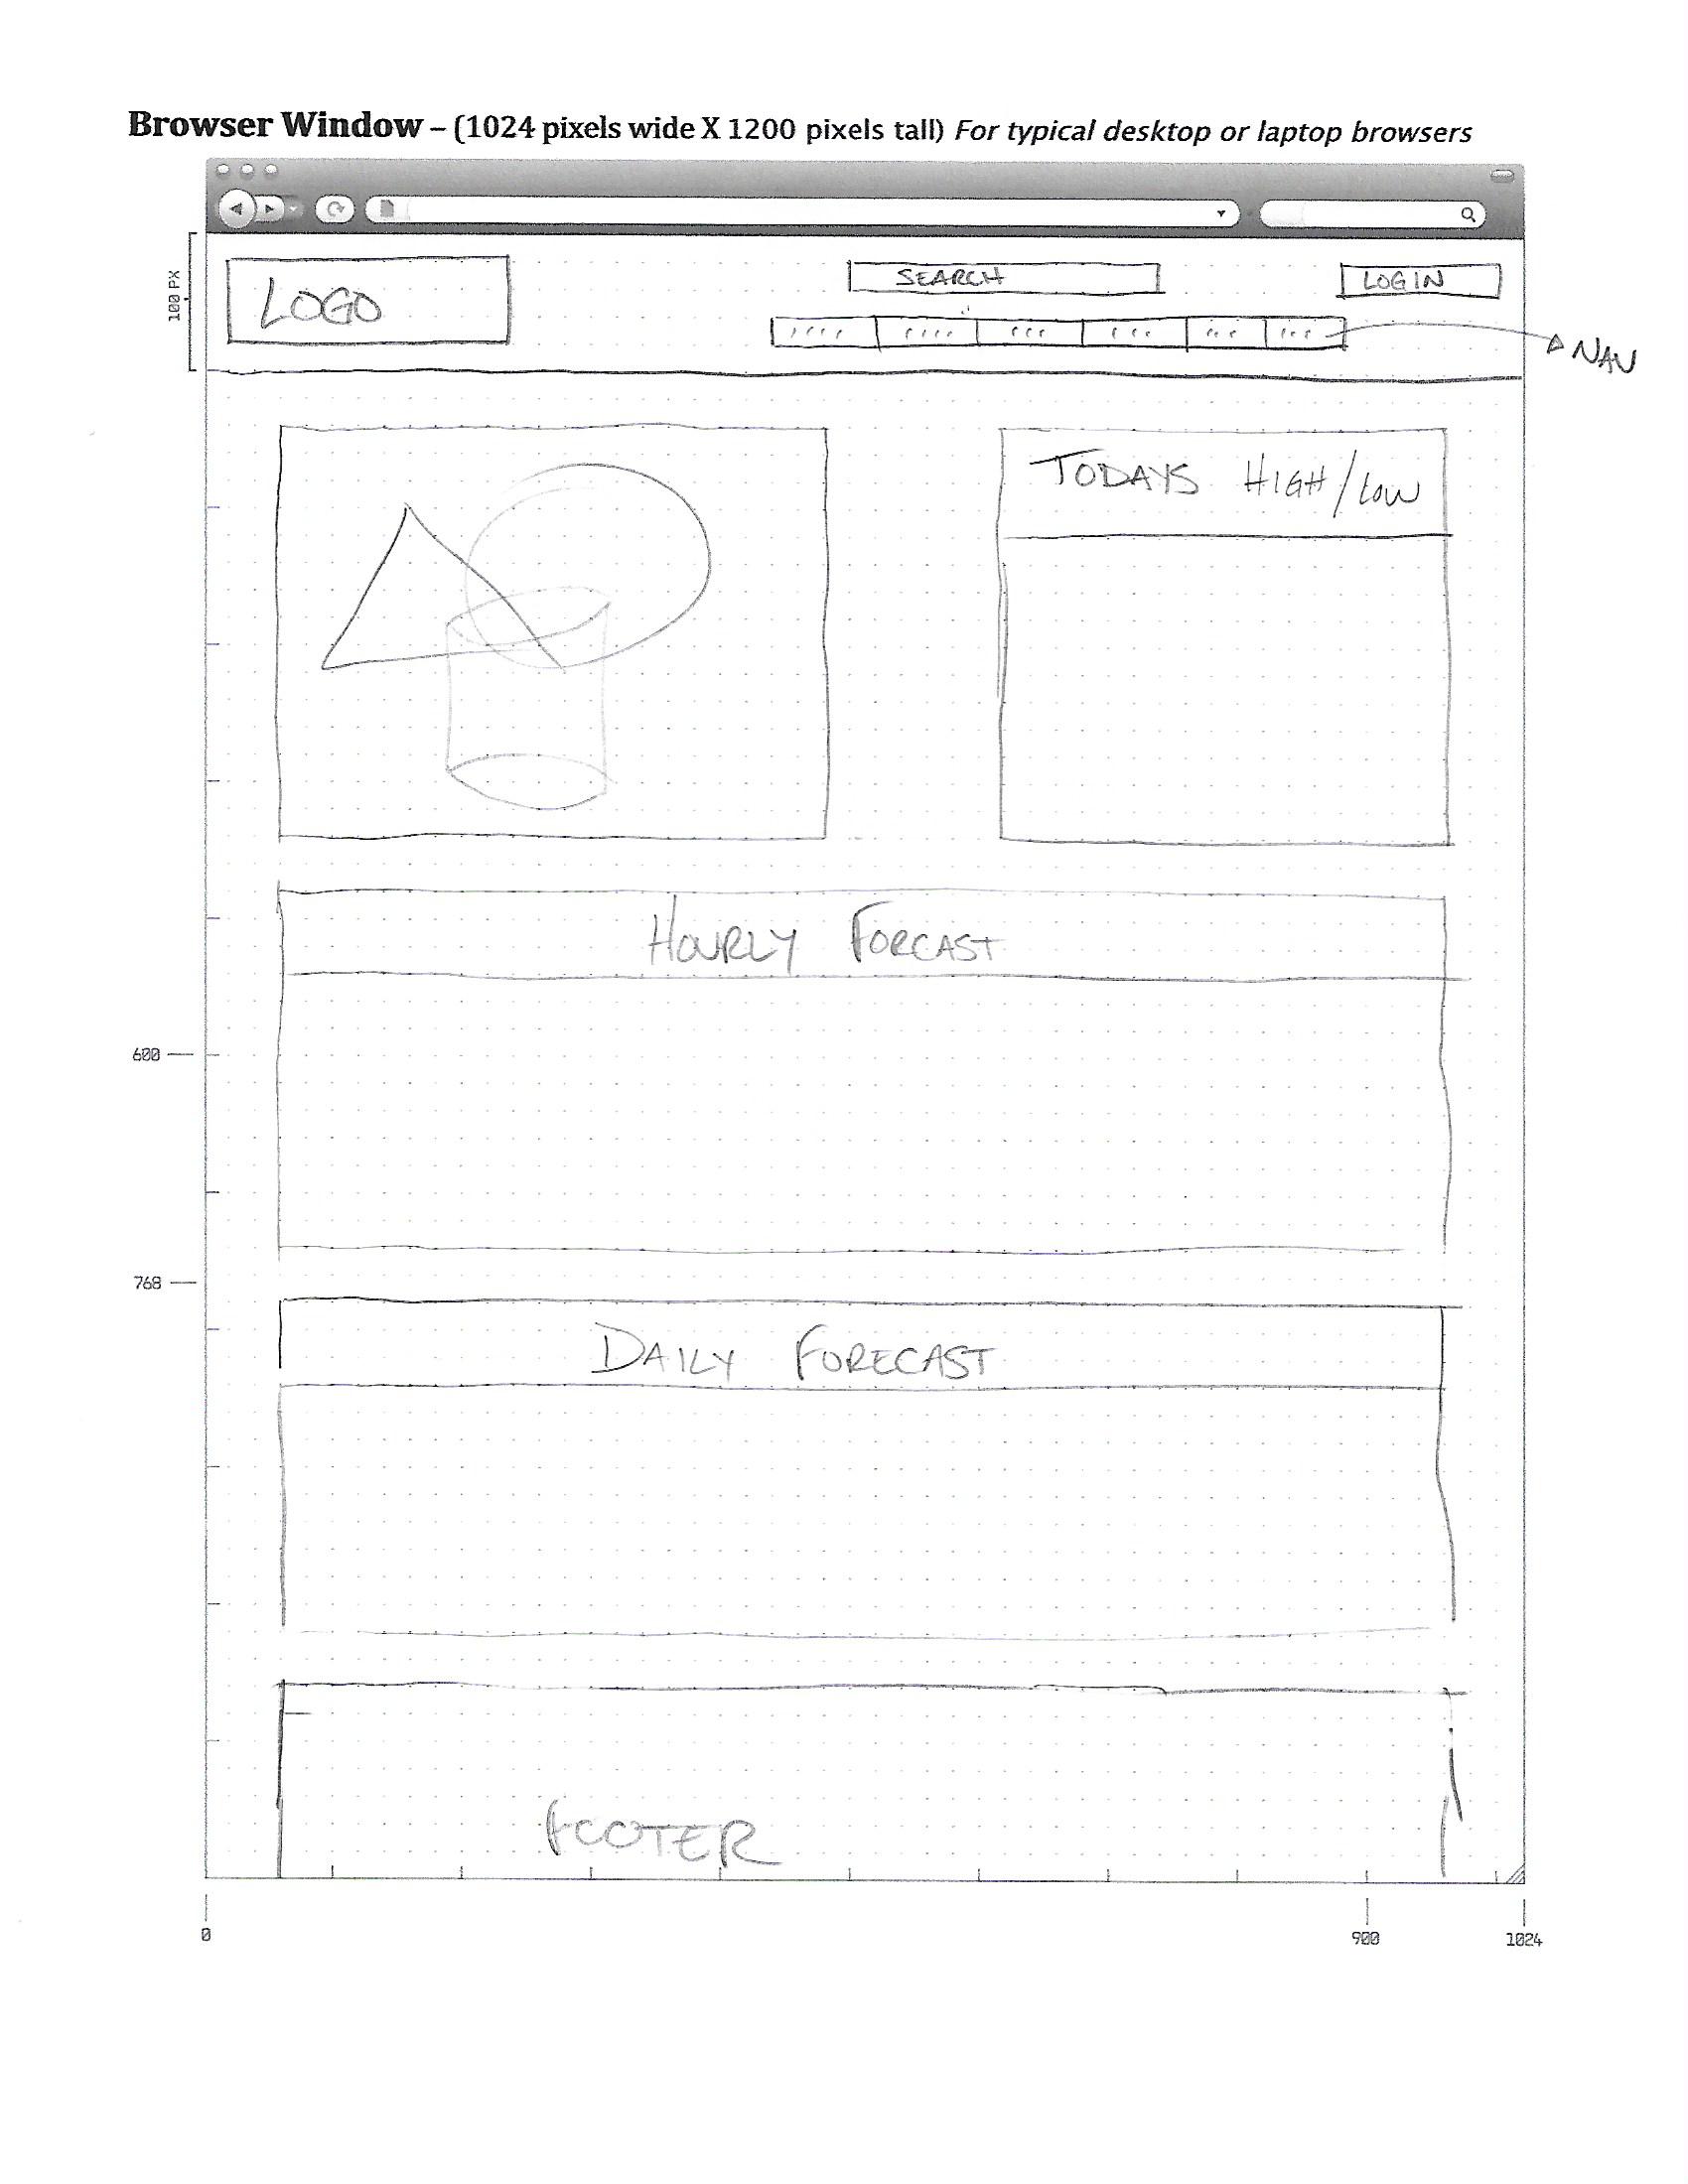 Browser Window – (1024 pixels wide X 1200 pixels tall) For typical desktop or laptop browsers
100 PX
LOGO
SEARCH
LOGIN
NAV
TODAYS HIGH/LOW
HOURLY FORCAST
600
768
DAILY FORECAST
FOOTER
0
900
1024